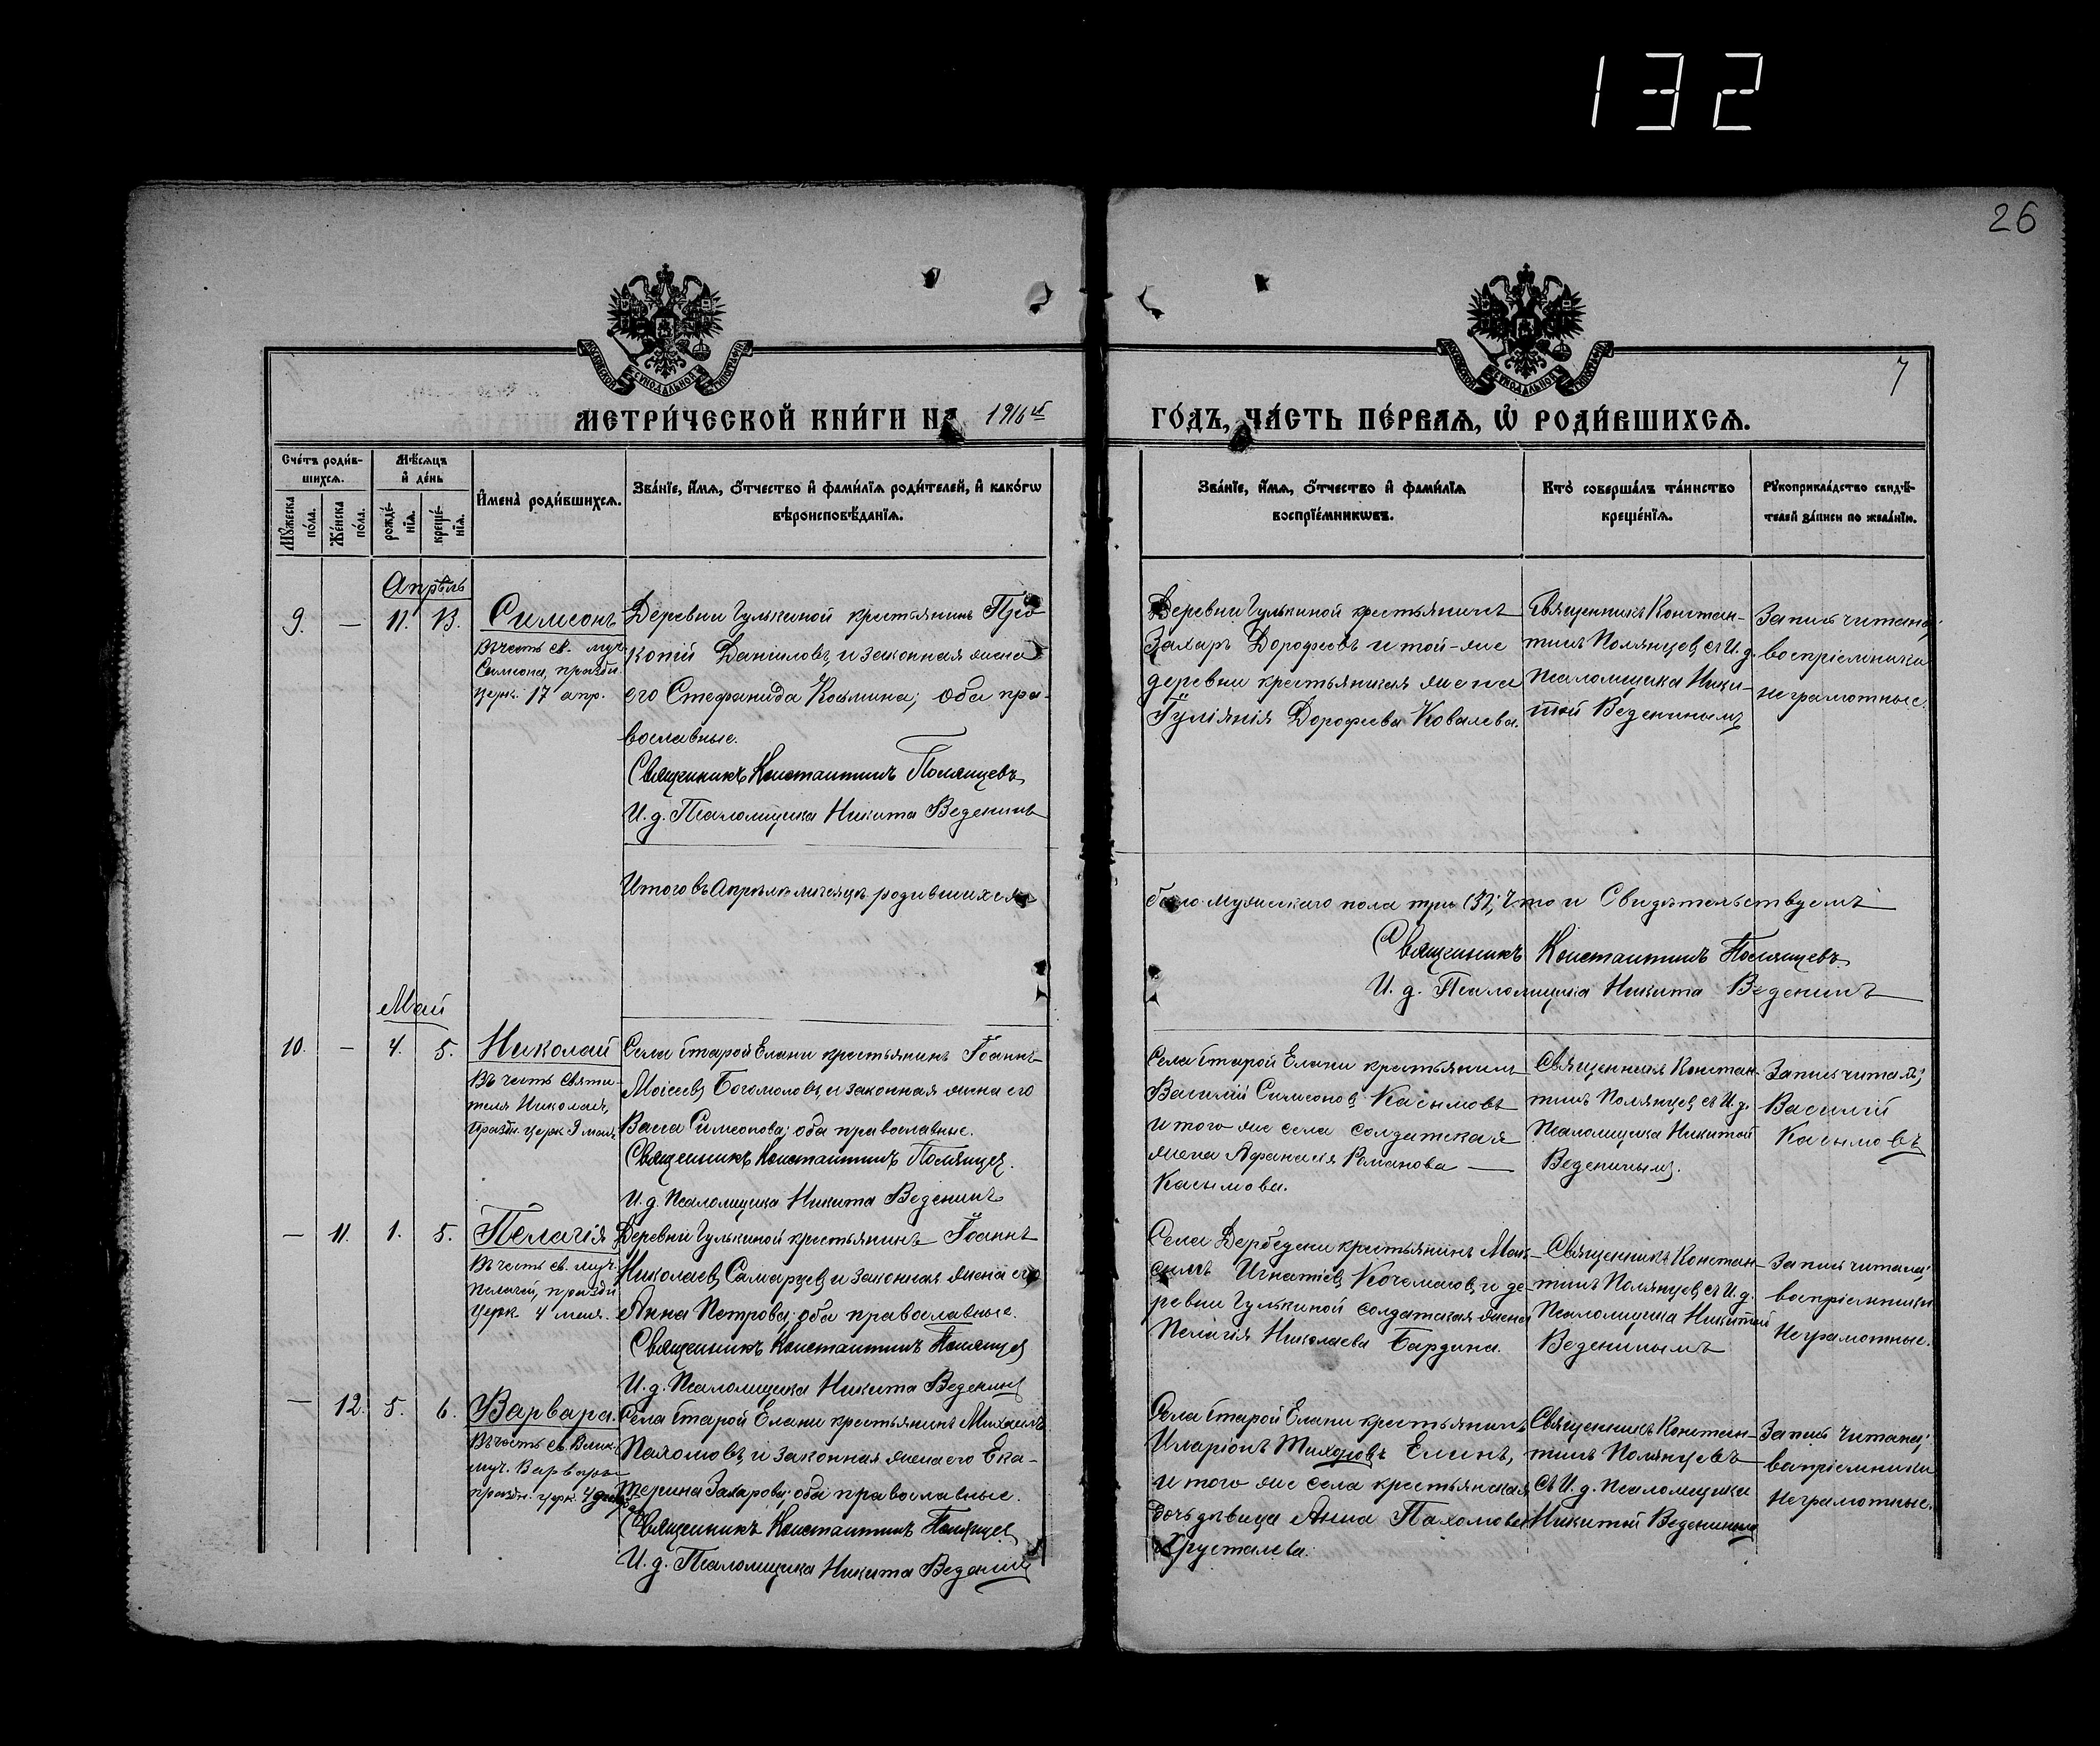 132
26
7
МЕТРИ́ЧЕСКОЙ КНИ́ГИ НА 1916 й ГО́ДЪ, ЧА́СТЬ ПЕ́РВАѦ, Ѽ РОДИ́ВШИХСѦ.
Сче́тъ роди́в-
шихсѧ.
Мꙋжеска по́ла.
Же́нска по́ла.
Мѣ́сяцъ
и҆ де́нь
рожде́-
нїѧ.
креще́-
нїѧ.
И҆мена̀ роди́вшихсѧ.
Зва́нїе, и҆́мѧ, ѻ҆́тчество и҆ фами́лїѧ роди́телей, и҆ како́гѡ
вѣроисповѣ́данїѧ.
Зва́нїе, и҆́мѧ, ѻ҆́тчество и҆ фами́лїѧ
воспрїе́мникѡвъ.
Кто̀ соверша́лъ та́инство
креще́нїѧ.
Рꙋкоприкла́дство свидѣ́-
телей за́писи по жела́нїю.
Апрѣль
9. — 11. 13.
Симеонъ
Въ честь св. муч.
Симеона, праздн.
церк. 17 апр.
Деревни Гулькиной крестьянинъ Про
копій Даниловъ, и законная жена
его Стефанида Козьмина; оба пра-
вославные.
Священникъ Константинъ Полянцевъ
И. д. Псаломщика Никита Веденинъ
Деревни Гулькиной крестьянинъ
Захаръ Дорофеевъ и той-же
деревни крестьянская жена
Іуліянія Дорофеева Ковалева.
Священникъ Констан-
тинъ Полянцевъ съ И. д.
псаломщика Ники-
той Веденинымъ
Запись читана;
воспріемники
неграмотные.
Итого въ Апрѣлѣ мѣсяцѣ родившихся
было мужескаго пола три (3), Что и Свидѣтельствуемъ
Священникъ Константинъ Полянцевъ
И. д. Псаломщика Никита Веденинъ
Май
10. — 4. 5.
Николай
Въ честь святи-
теля Николая,
праздн. церк 9 мая
Села Старой Елани крестьянинъ Іоаннъ
Моісеевъ Богомоловъ, и законная жена его
Васса Симеонова; оба православные.
Священникъ Константинъ Полянцев.
И. д. Псаломщика Никита Веденинъ
Села Старой Елани крестьянинъ
Василій Симеоновъ Касымовъ
и того же села солдатская
жена Афанасія Романова —
Касымова.
Священникъ Констан-
тинъ Полянцевъ съ И. д.
Псаломщика Никитой
Веденинымъ.
Запись читалъ;
Василій
Касымовъ
— 11. 1. 5.
Пелагія
Въ честь св. муч.
Пелагіи, праздн
церк. 4 мая.
Деревни Гулькиной крестьянинъ Іоаннъ
Николаевъ Самарцевъ и законная жена его
Анна Петрова; оба православные.
Священникъ Константинъ Полянцев
И. д. Псаломщика Никита Веденинъ
Села Дербедени крестьянинъ Мак-
симъ Игнатіевъ Кочемасовъ, и де-
ревни Гулькиной солдатская жена
Пелагія Николаева Бардина.
Священникъ Констан-
тинъ Полянцевъ съ И. д.
Псаломщика Никитой
Веденинымъ
Запись читана;
воспріемники
Неграмотные.
— 12. 5. 6.
Варвара.
Въ честь св. Велик.
муч. Варвары
праздн. церк. 4 декаб.
Села Старой Елани крестьянинъ Михаилъ
Пахомовъ, и законная жена его Ека-
терина Захарова; оба православные.
Священникъ Константинъ Полянцев
И. д. Псаломщика Никита Веденинъ
Села Старой Елани крестьянинъ
Иларіонъ Тихоновъ Елинъ,
и того же села крестьянская
дочь дѣвица Анна Пахомова
Хрусталева.
Священникъ Констан-
тинъ Полянцевъ
съ И. д. псаломщика
Никитой Веденинымъ
Запись читана;
вапріемники
Неграмотные.